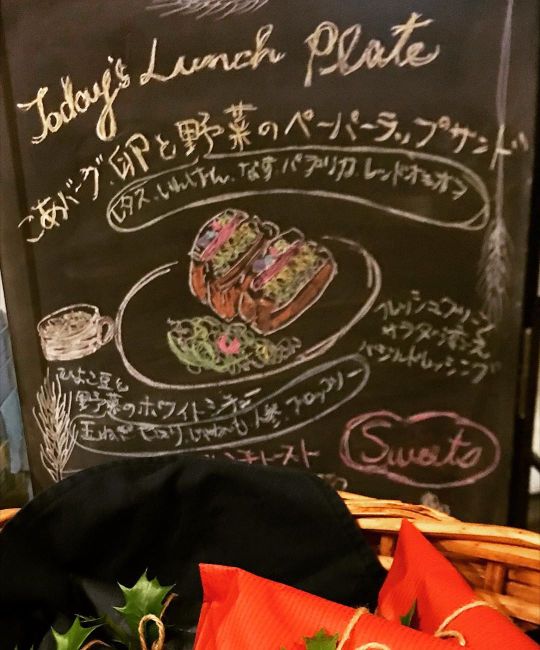 Today's Lunch Plate
ごあバーグ、卵と野菜のペーパーラップサンド
レタス・いんげん、なす・パプリカ・レッドオニオン
フレッシュグリーン
サラダ添え
バジルドレッシング
ひよこ豆と
野菜のホワイトシチュー
玉ねぎ セロリ、じゃがいも 人参、ブロッコリー
Sweets
チトースト